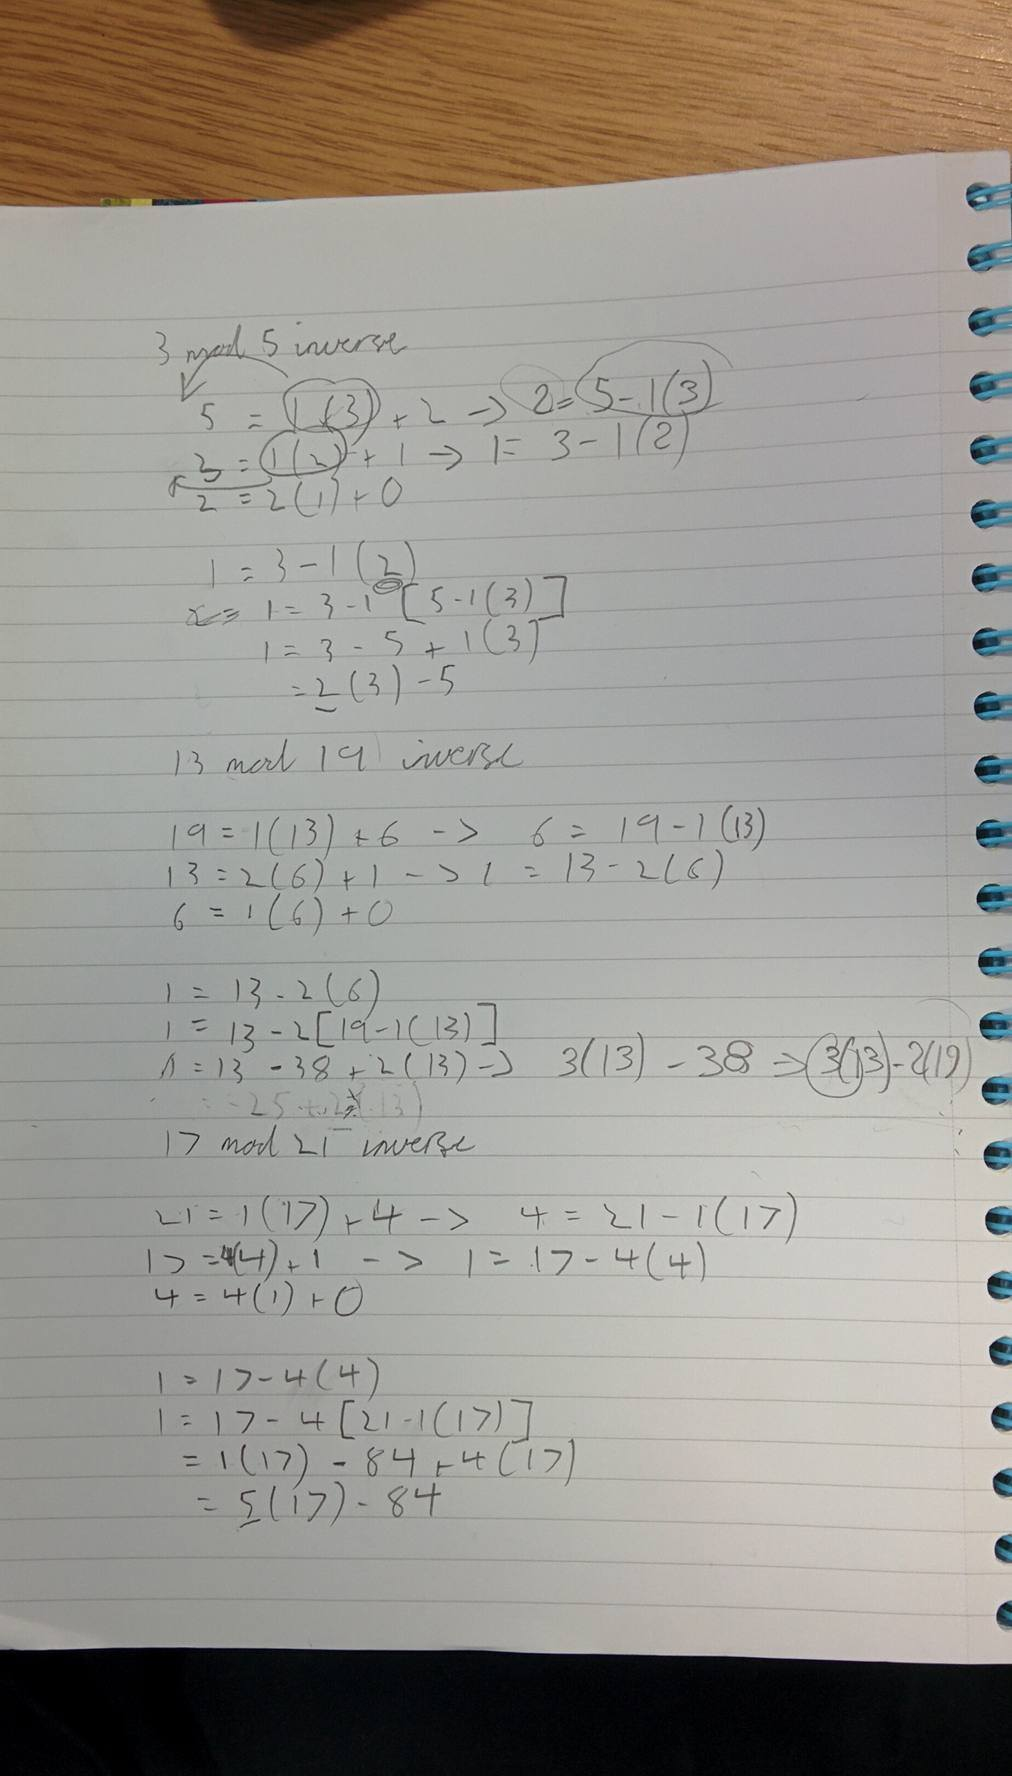 3 mod 5 inverse
5 = 1(3) + 2 -> 2 = 5 - 1(3)
3 = 1(2) + 1 -> 1 = 3 - 1(2)
2 = 2(1) + 0
1 = 3 - 1(2)
1 = 3 - 1 [5 - 1(3)]
1 = 3 - 5 + 1(3)
= 2(3) - 5
13 mod 19 inverse
19 = 1(13) + 6 -> 6 = 19 - 1(13)
13 = 2(6) + 1 -> 1 = 13 - 2(6)
6 = 1(6) + 0
1 = 13 - 2(6)
1 = 13 - 2[19 - 1(13)]
1 = 13 - 38 + 2(13) -> 3(13) - 38 => 3(13) - 2(19)
17 mod 21 inverse
21 = 1(17) + 4 -> 4 = 21 - 1(17)
17 = 4(4) + 1 -> 1 = 17 - 4(4)
4 = 4(1) + 0
1 = 17 - 4(4)
1 = 17 - 4[21 - 1(17)]
= 1(17) - 84 + 4(17)
= 5(17) - 84